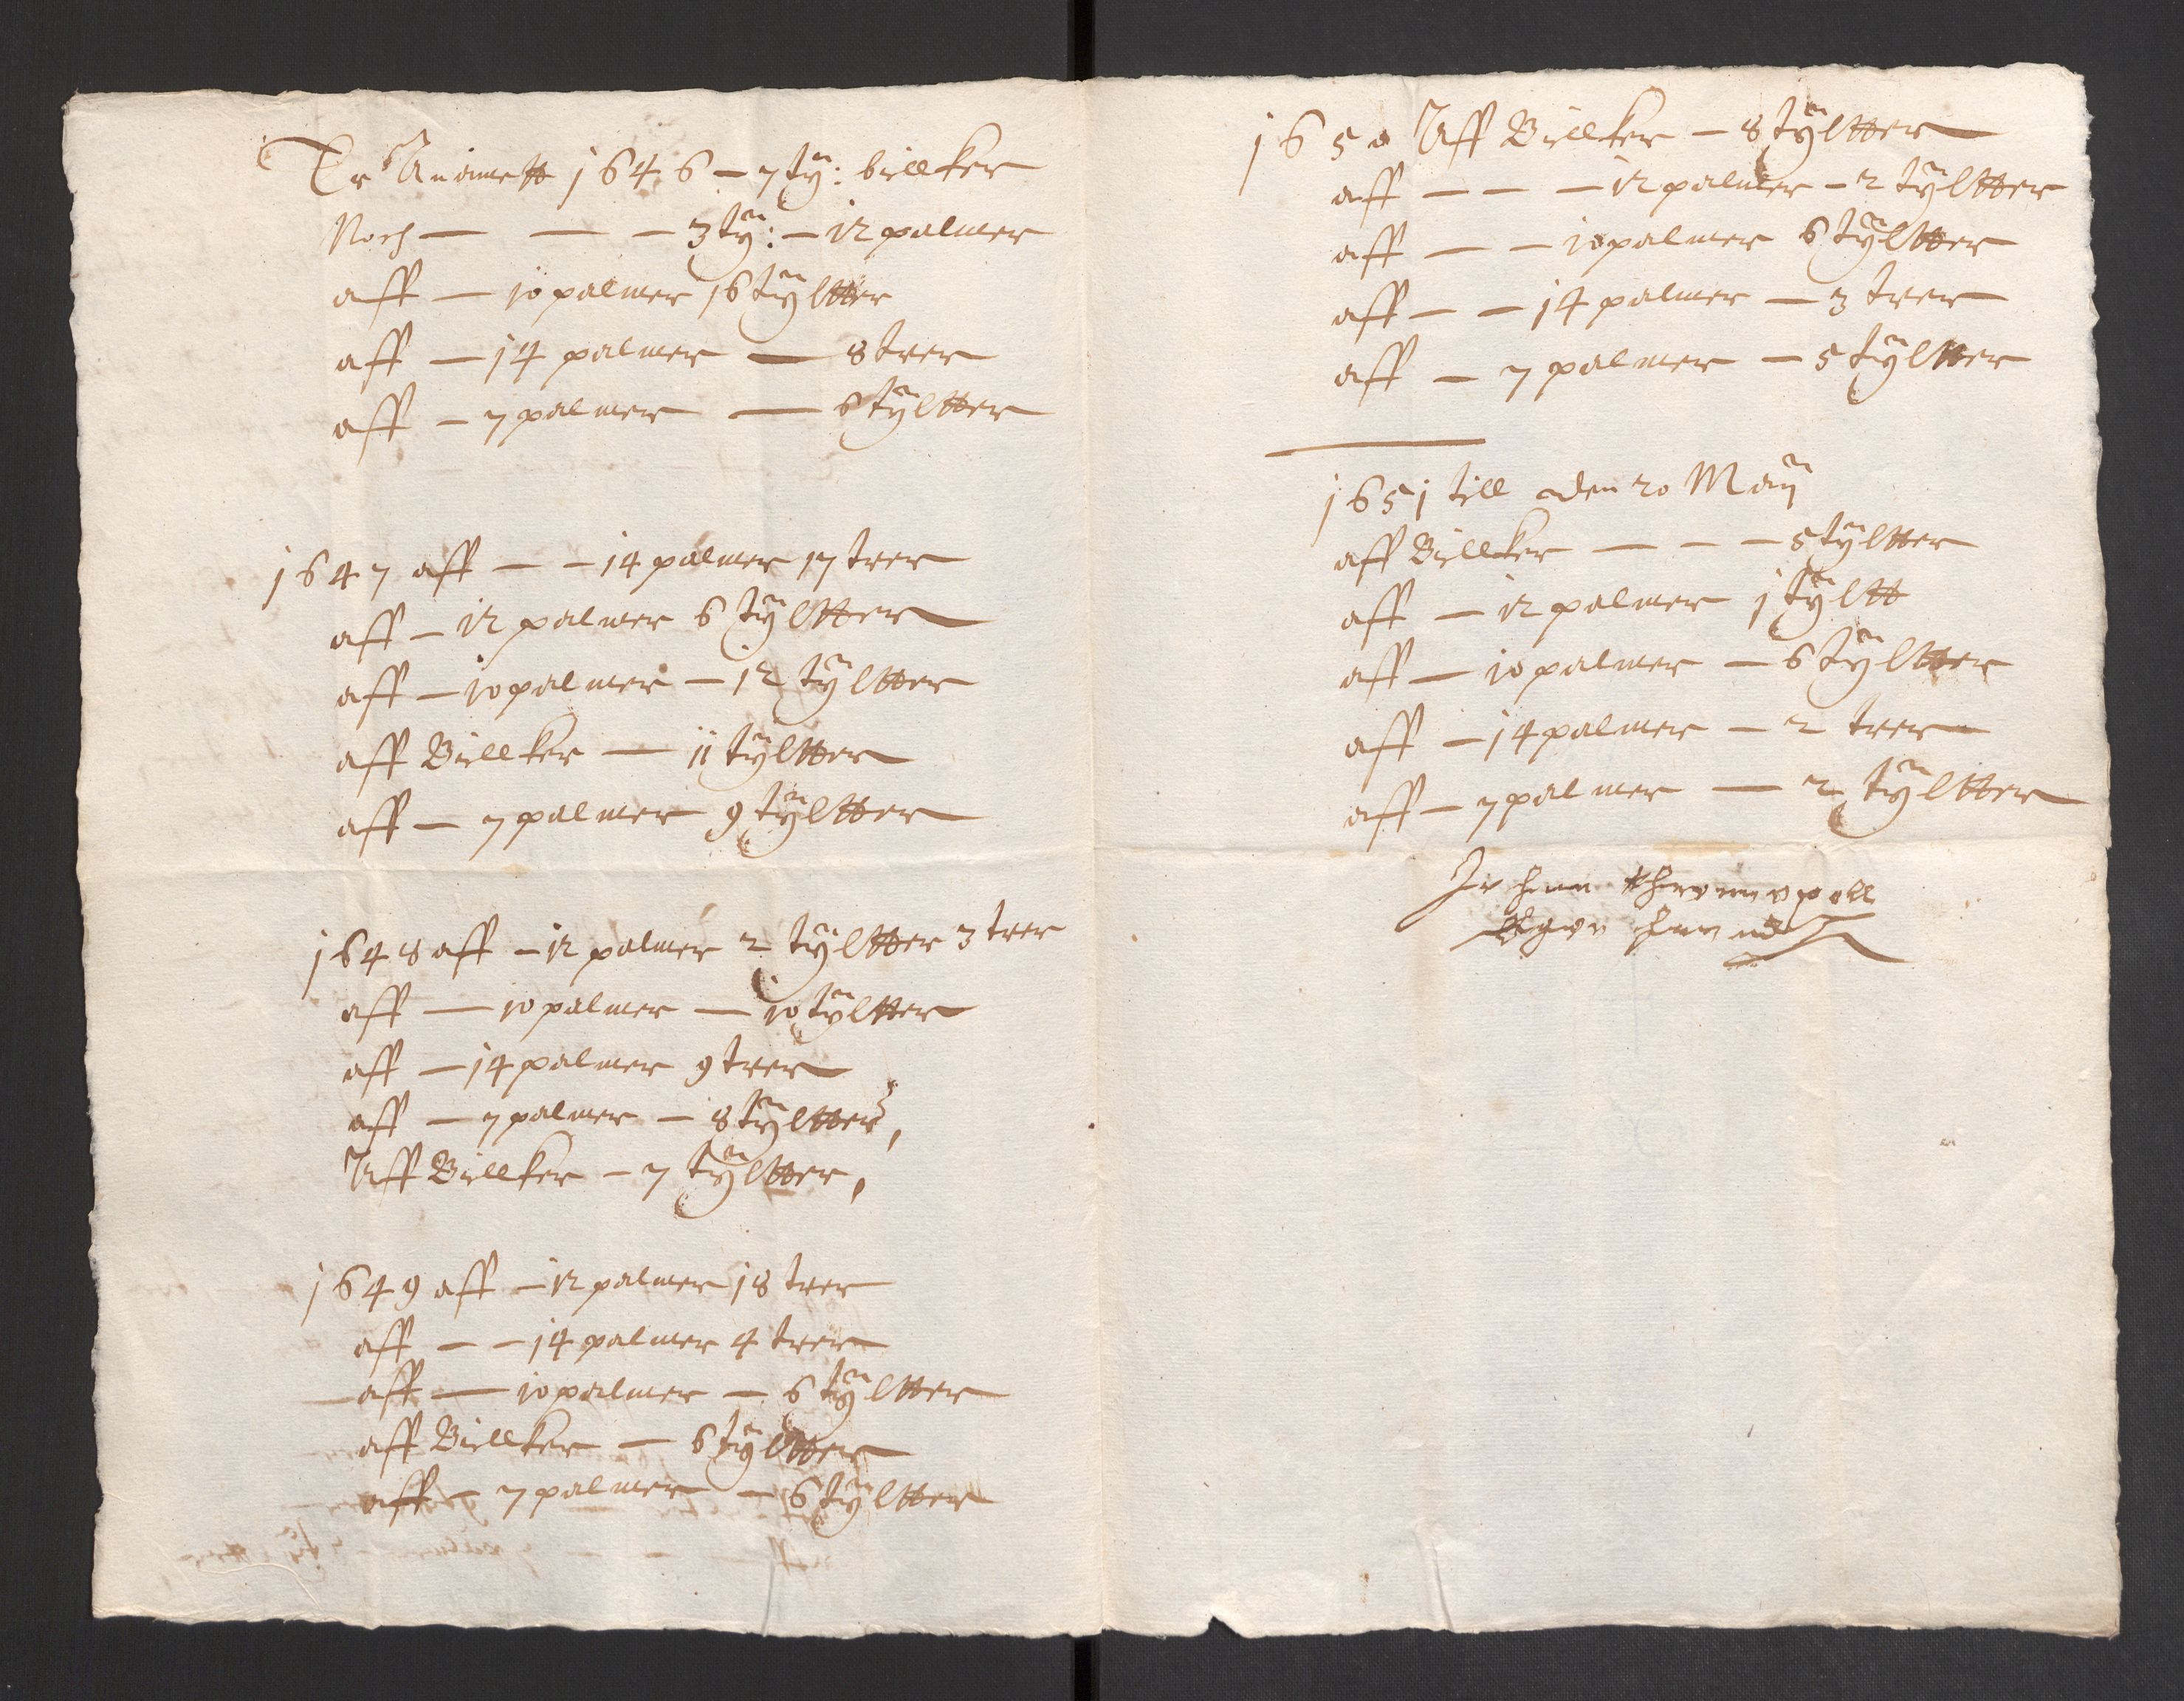 Er Anamett 1646 – 7 tÿ: billker
Noch — — – 3 tÿ: – 12 palmer
aff — 10 palmer 16 tÿltter
aff — 14 palmer — 8 trer
aff – 7 palmer — 6 tÿltter
1647 aff – – 14 palmer 17 trer
aff – 12 palmer 6 tÿltter
aff – 10 palmer – 12 tÿltter
aff Billker — 11 tÿltter
aff – 7 palmer 9 tÿltter
1648 aff – 12 palmer 2 tÿltter 3 trer
aff — 10 palmer — 10 tÿltter
aff – 14 palmer 9 trer
aff – 7 palmer – 8 tÿltter,
Aff Billker – 7 tÿltter,
1649 aff – 12 palmer 18 trer
aff – – 14 palmer 4 trer
aff — 10 palmer – 6 tÿltter
aff Billker – 6 tÿltter
aff – 7 palmer – 6 tÿltter
1650 Aff Billker – 8 tÿltter
aff – – – 12 palmer – 2 tÿltter
aff – – 10 palmer 6 tÿltter
aff – – 14 palmer – 3 trer
aff – 7 palmer – 5 tÿltter
1651 till den 20 Maÿ
aff Billker – – – 5 tÿltter
aff – 12 palmer 1 tÿltt
aff – 10 palmer – 6 tÿltter
aff – 14 palmer – 2 trer
aff – 7 palmer — 2 tÿltter